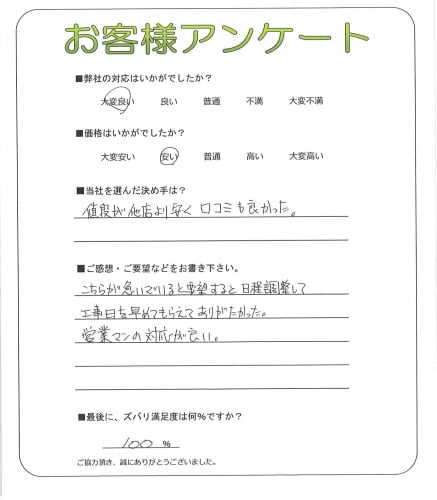 お客様アンケート
■弊社の対応はいかがでしたか？
大変良い 良い 普通 不満 大変不満
■価格はいかがでしたか？
大変安い 安い 普通 高い 大変高い
■当社を選んだ決め手は？
値段が他店より安く 口コミも良かった。
■ご感想・ご要望などをお書き下さい。
こちらが急いでいると要望すると日程調整して
工事日を早めてもらえてありがたかった。
営業マンの対応が良い。
■最後に、ズバリ満足度は何%ですか？
100 %
ご協力頂き、誠にありがとうございました。